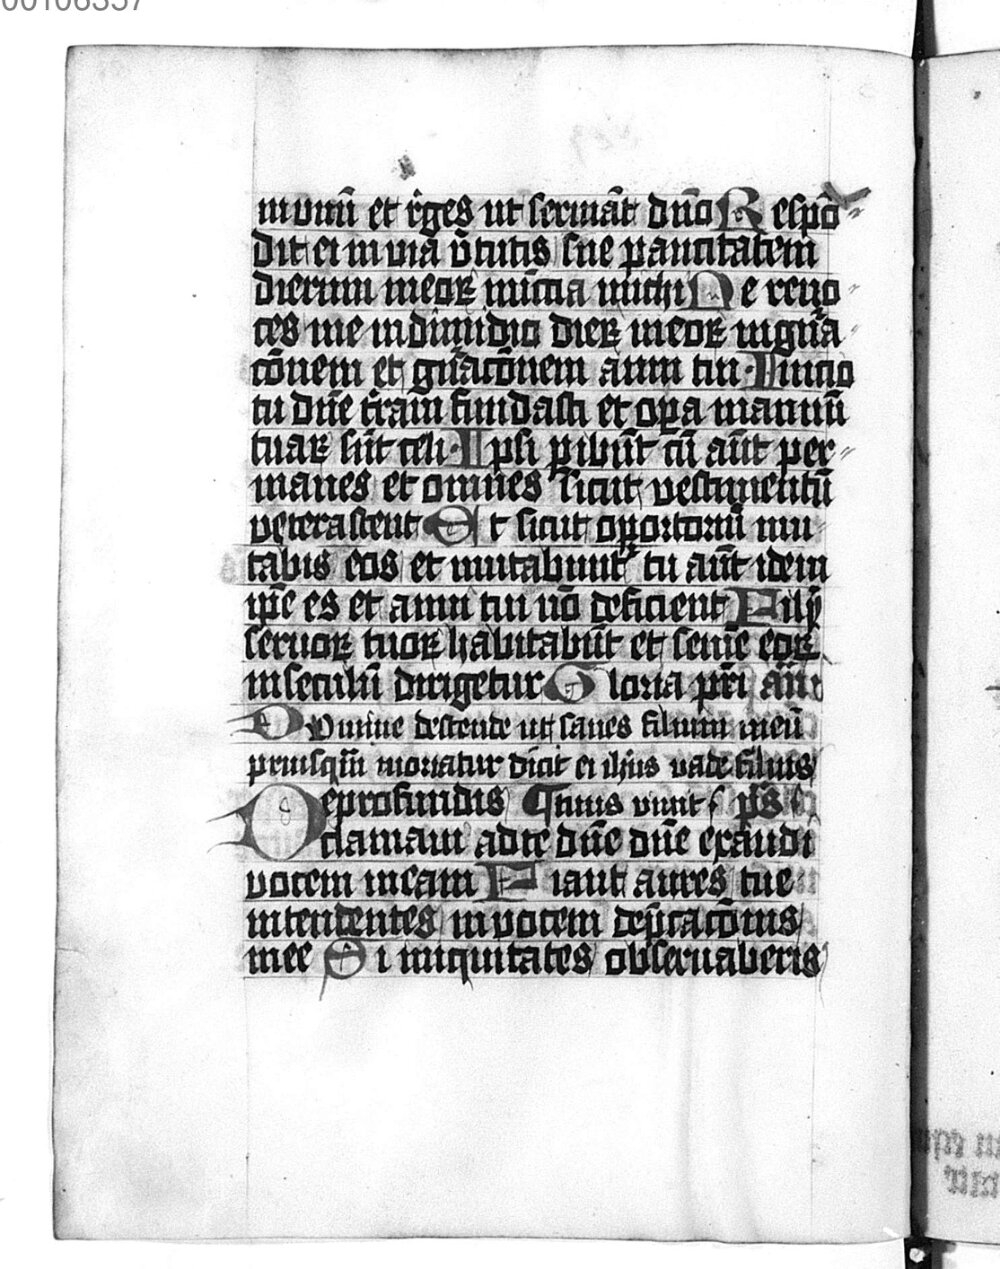 00106357
in vnū et r̄ges ut seruiāt dn̄o Respō
dit ei in via v̄tutis sue paucitatem
dierum meoꝝ nūctia michi Ne reuo
ces me in dimidio dieꝝ meoꝝ in gn̄a
cōnem et gn̄acōnem anni tui Inicio
tu dn̄e t̄ram fundasti et oꝑa manuū
tuaꝝ sūt celi Ipsi ꝑibūt tū aūt per
manes et omnes sicut vestimentū
veterascent Et sicut oꝑortoriū mu
tabis eos et mutabunt᷑ tu aūt idem
ip̄e es et anni tui nō deficient Filij
seruoꝝ tuoꝝ habitabūt et semē eoꝝ
in seculū dirigetur Gloria pr̄i añ
Domine descende ut sanes filium meū
priusqͣm moriatur dicit ei ihus vade filius
De profundis tuus viuit ps̄
clamaui ad te dn̄e dn̄e exaudi
vocem meam Fiant aures tue
intendentes in vocem dep̄cacōnis
mee Si iniquitates obseruaueris